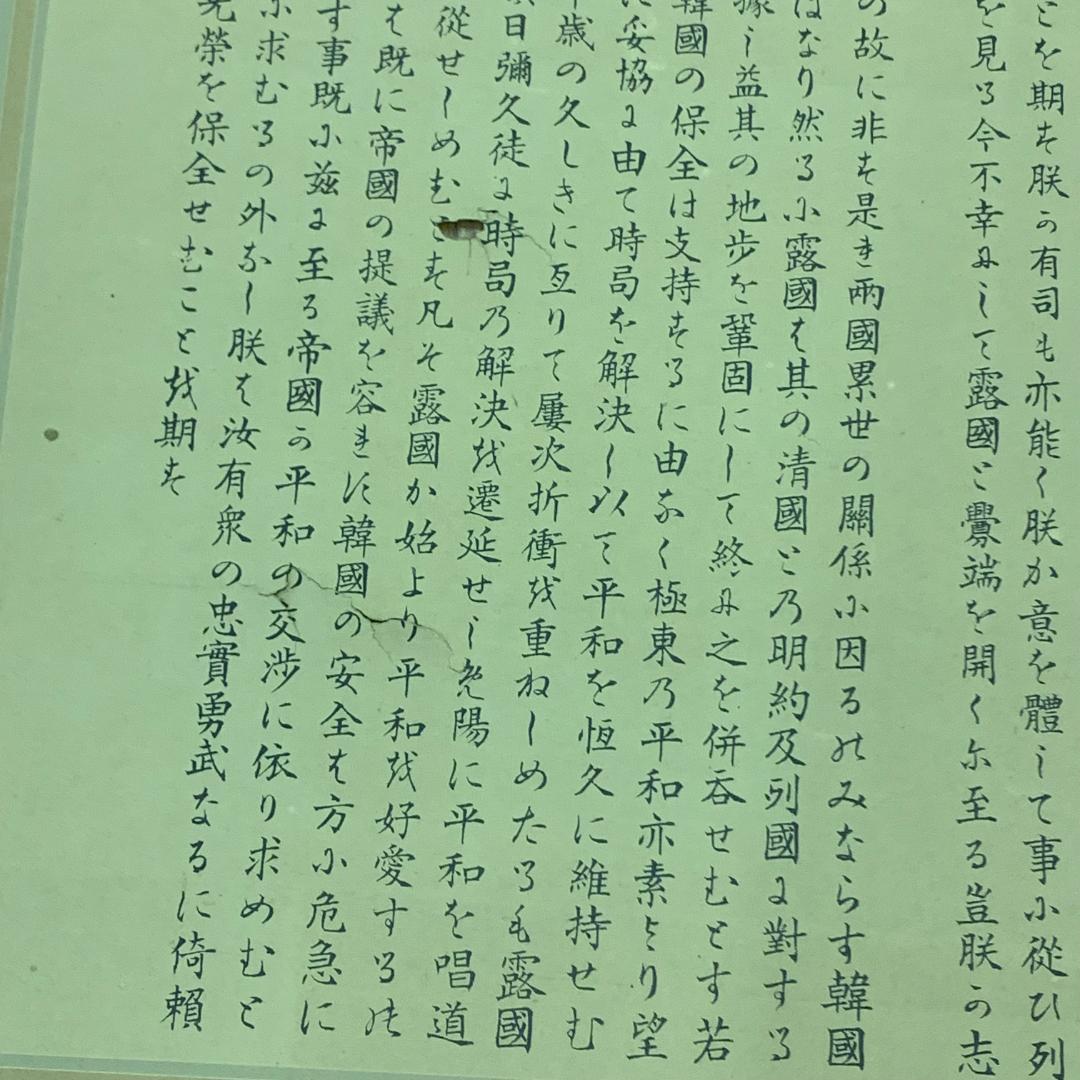 とを期す朕か有司も亦能く朕か意を體して事に從ひ列
を見る今不幸にして露國と釁端を開くに至る豈朕の志
の故に非す是れ兩國累世の關係に因るのみならす韓國
はなり然るに露國は其の清國との明約及列國に對する
據し益其の地步を鞏固にして終に之を併呑せむとす若
韓國の保全は支持するに由なく極東の平和亦素より望
に妥協に由て時局を解決し以て平和を恒久に維持せむ
歳の久しきに亙りて屢次折衝を重ねしめたるも露國
日彌久徒に時局の解決を遷延せしめ陽に平和を唱道
從せしめむとす凡そ露國か始より平和を好愛するの
は既に帝國の提議を容れす韓國の安全は方に危急に
す事既に茲に至る帝國か平和の交渉に依り求めむと
に求むるの外なし朕は汝有衆の忠實勇武なるに倚賴
光榮を保全せむことを期す